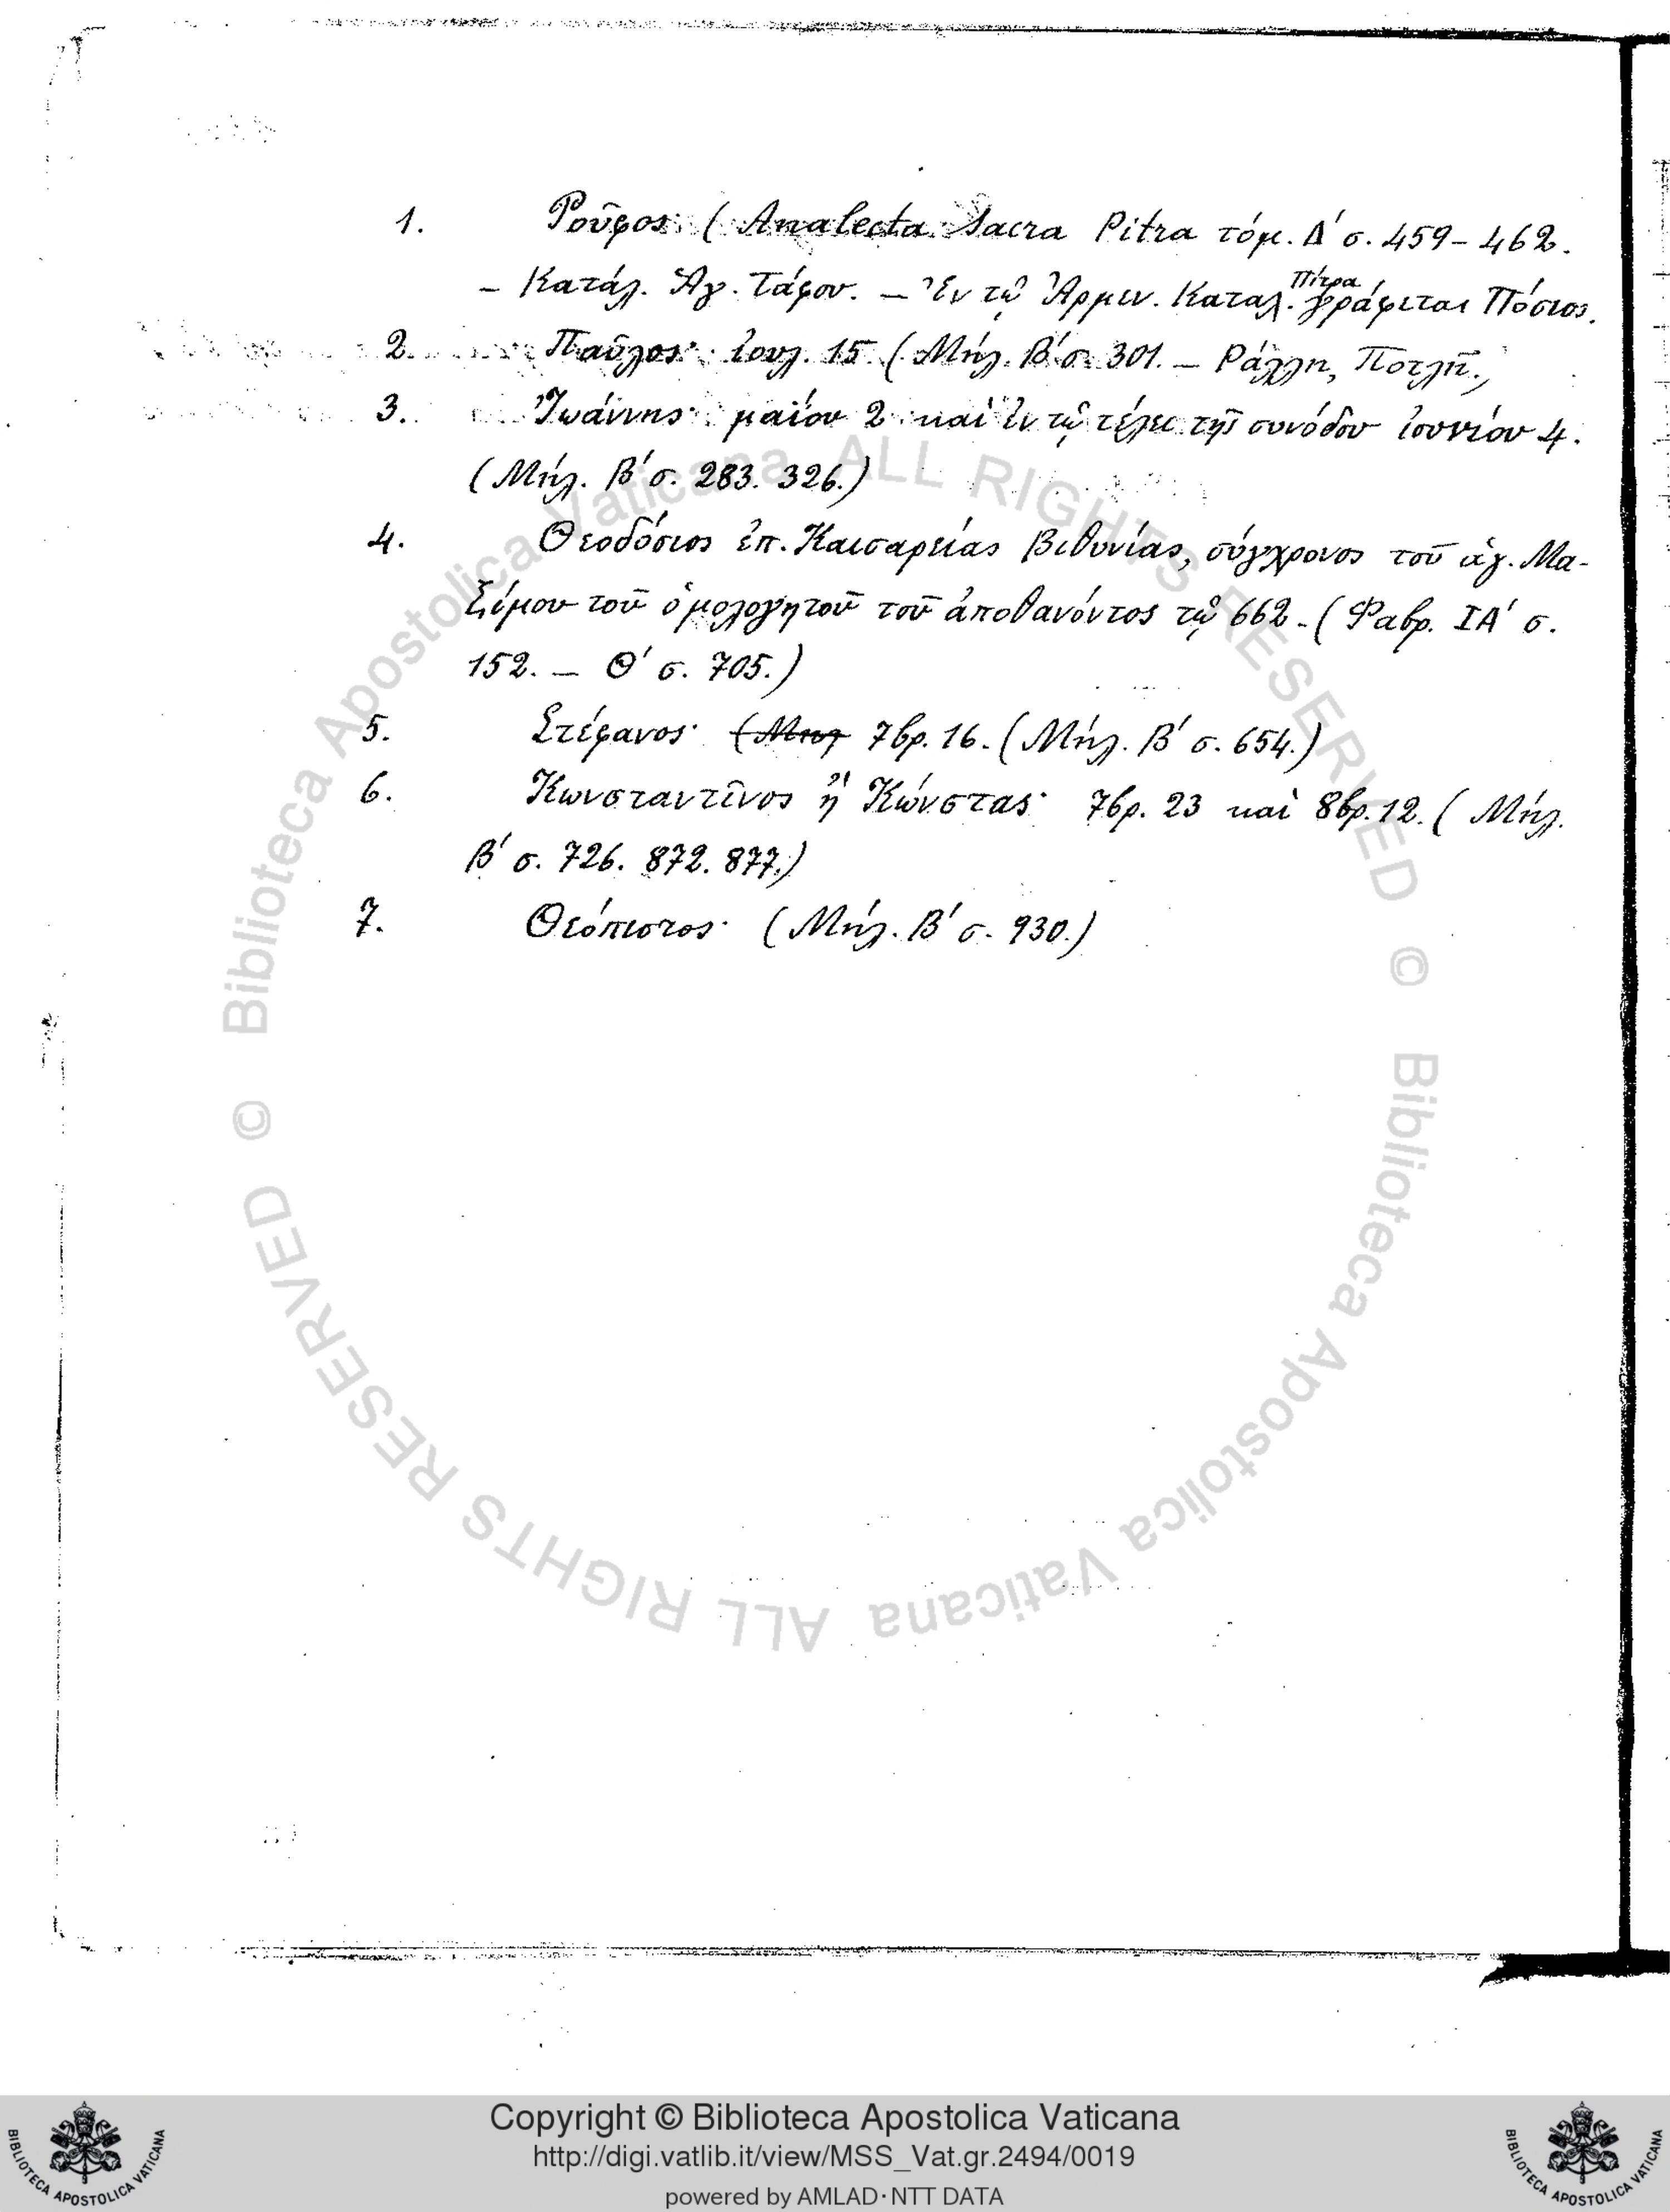 1. Ῥοῦφος· (Analecta Sacra Pitra τόμ. Δ΄ σ. 459–462.
– Κατάλ. Ἁγ. Τάφου. – Ἐν τῷ Ἀρμεν. Καταλ. Πίτρα γράφεται Πόσιος.
2. Παῦλος· ἰουλ. 15. (Μήλ. Β΄ σ. 301. – Ράλλη, Ποτλῆ.)
3. Ἰωάννης· μαΐου 2 καὶ ἐν τῷ τέλει τῆς συνόδου ἰουνίου 4.
(Μήλ. Β΄ σ. 283. 326.)
4. Θεοδόσιος ἐπ. Καισαρείας Βιθυνίας, σύγχρονος τοῦ ἁγ. Μα-
ξίμου τοῦ ὁμολογητοῦ τοῦ ἀποθανόντος τῷ 662. (Φαβρ. ΙΑ΄ σ.
152. – Θ΄ σ. 705.)
5. Στέφανος· (Μηλ 7βρ. 16. (Μήλ. Β΄ σ. 654.)
6. Κωνσταντῖνος ἢ Κώνστας· 7βρ. 23 καὶ 8βρ. 12. (Μήλ.
Β΄ σ. 726. 872. 877.)
7. Θεόπιστος· (Μήλ. Β΄ σ. 930.)
© Biblioteca Apostolica Vaticana ALL RIGHTS RESERVED
© Biblioteca Apostolica Vaticana ALL RIGHTS RESERVED
Copyright © Biblioteca Apostolica Vaticana
http://digi.vatlib.it/view/MSS_Vat.gr.2494/0019
powered by AMLAD·NTT DATA
BIBLIOTECA APOSTOLICA VATICANA
BIBLIOTECA APOSTOLICA VATICANA